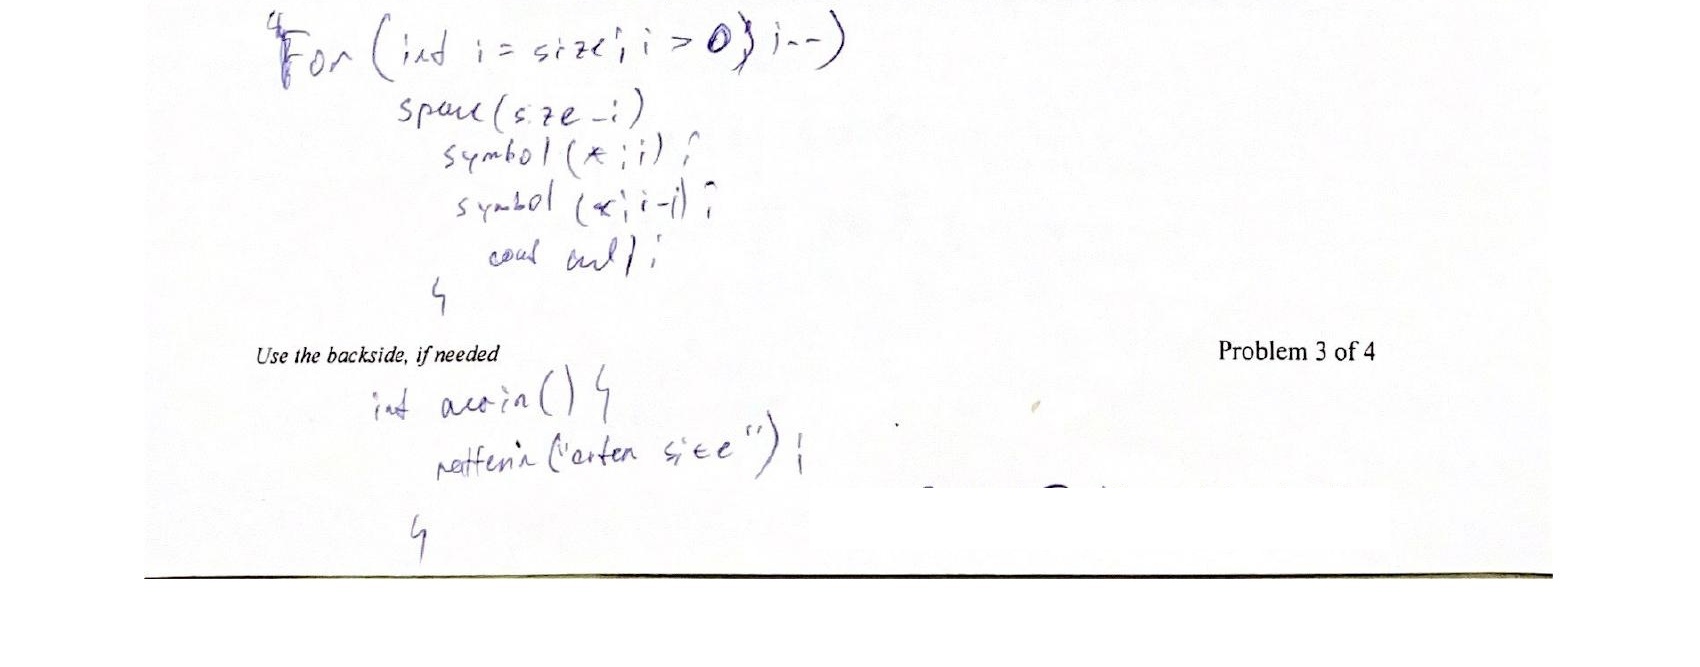 {
For (int i = size; i > 0; i--)
space (size -i)
symbol (*; i) ;
symbol (*; i-1) ;
cout endl ;
}
Use the backside, if needed
Problem 3 of 4
int main() {
("enter size") ;
}